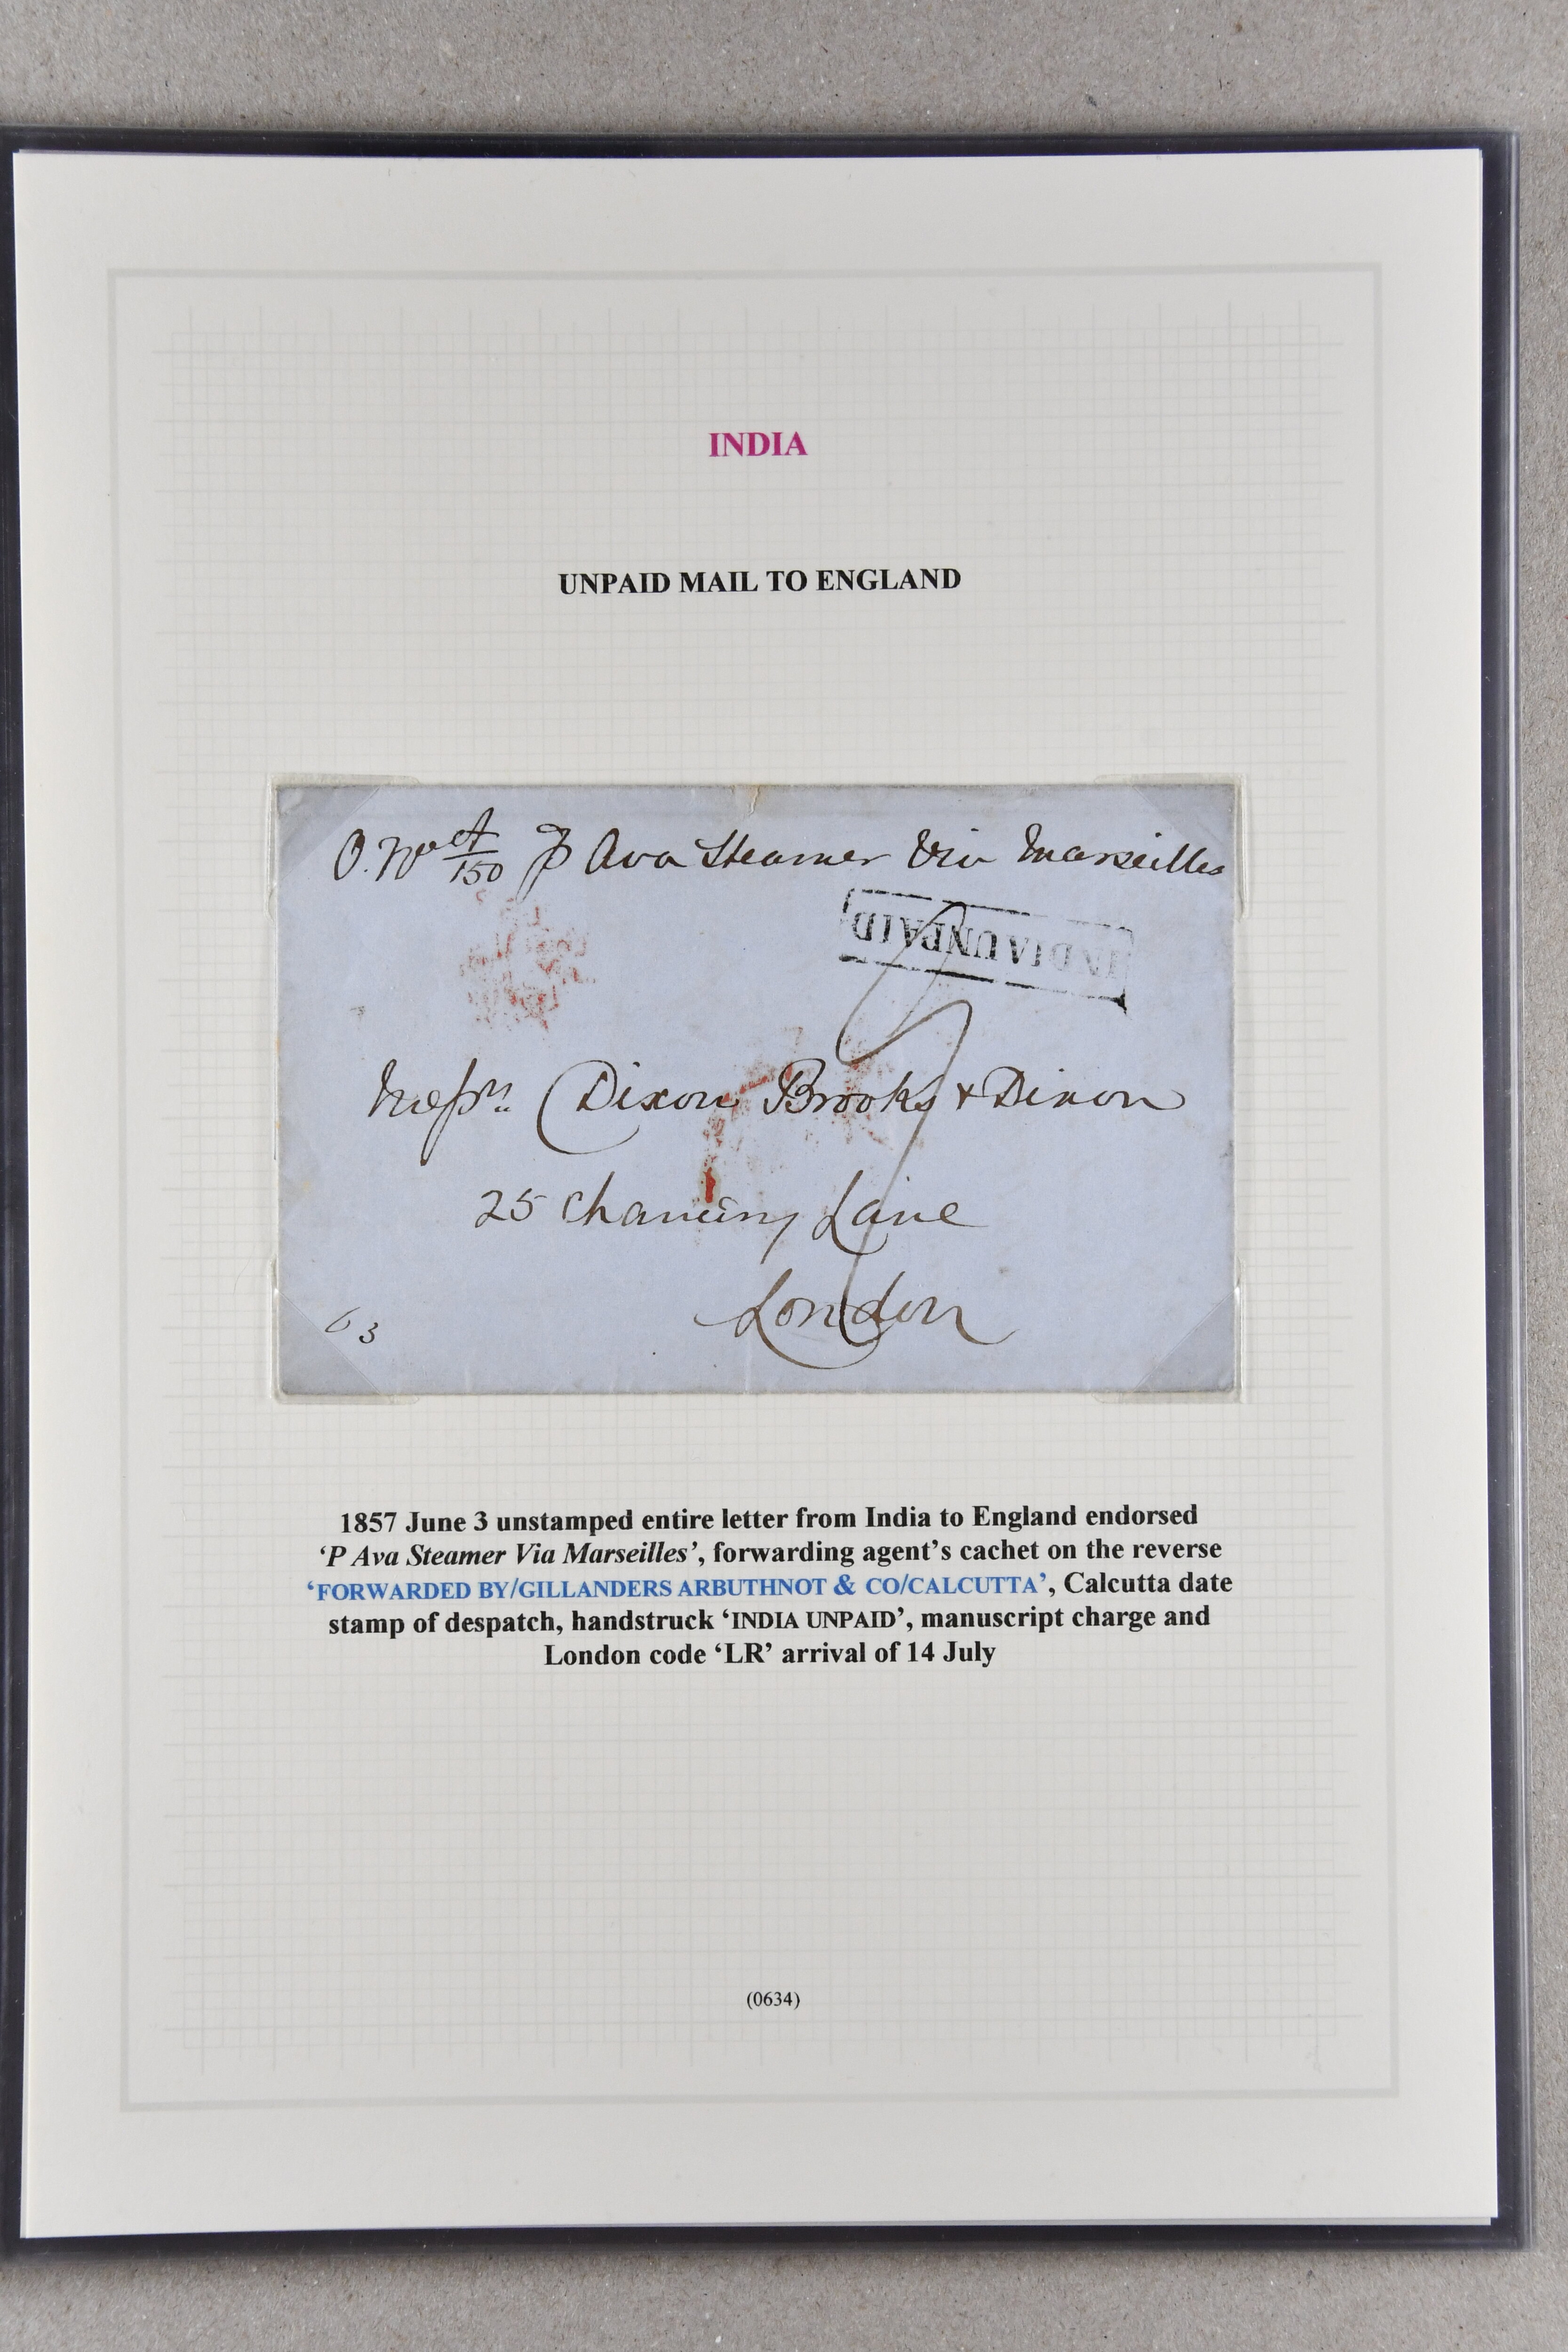 INDIA
UNPAID MAIL TO ENGLAND
P Ava Steamer Via Marseilles
INDIA UNPAID
Messrs. Dixon Brooks & Dixon
25 Chancery Lane
London
63
1857 June 3 unstamped entire letter from India to England endorsed
‘P Ava Steamer Via Marseilles’, forwarding agent’s cachet on the reverse
‘FORWARDED BY/GILLANDERS ARBUTHNOT & CO/CALCUTTA’, Calcutta date
stamp of despatch, handstruck ‘INDIA UNPAID’, manuscript charge and
London code ‘LR’ arrival of 14 July
(0634)